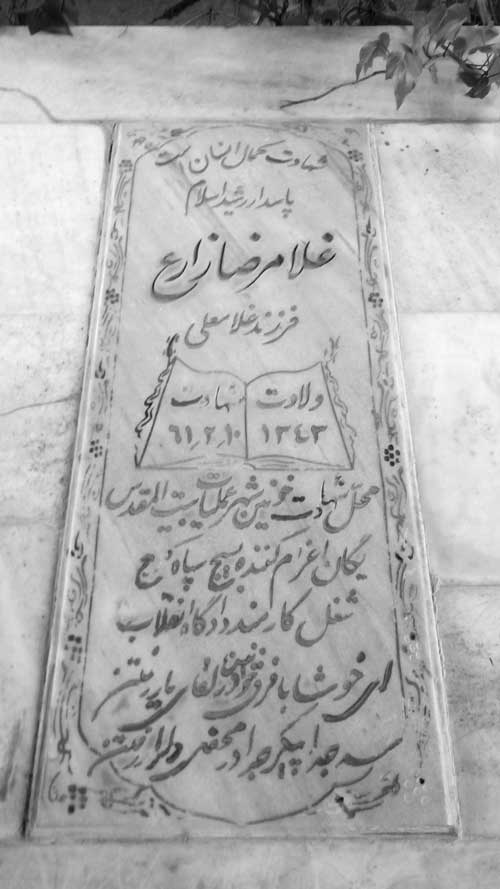 شهادت کمال انسان است
پاسدار رشید اسلام
غلامرضا زارع
فرزند غلامعلی
ولادت شهادت
۱۳۴۳ ۶۱٫۲٫۱۰
محل شهادت خونین شهر عملیات بیت المقدس
یگان اعزام کننده بسیج سپاه کرج
شغل کارمند دادگاه انقلاب
ای خوشا با فرق خونین در لقای یار رفتن
سر جدا پیکر جدا در محفل دلدار رفتن